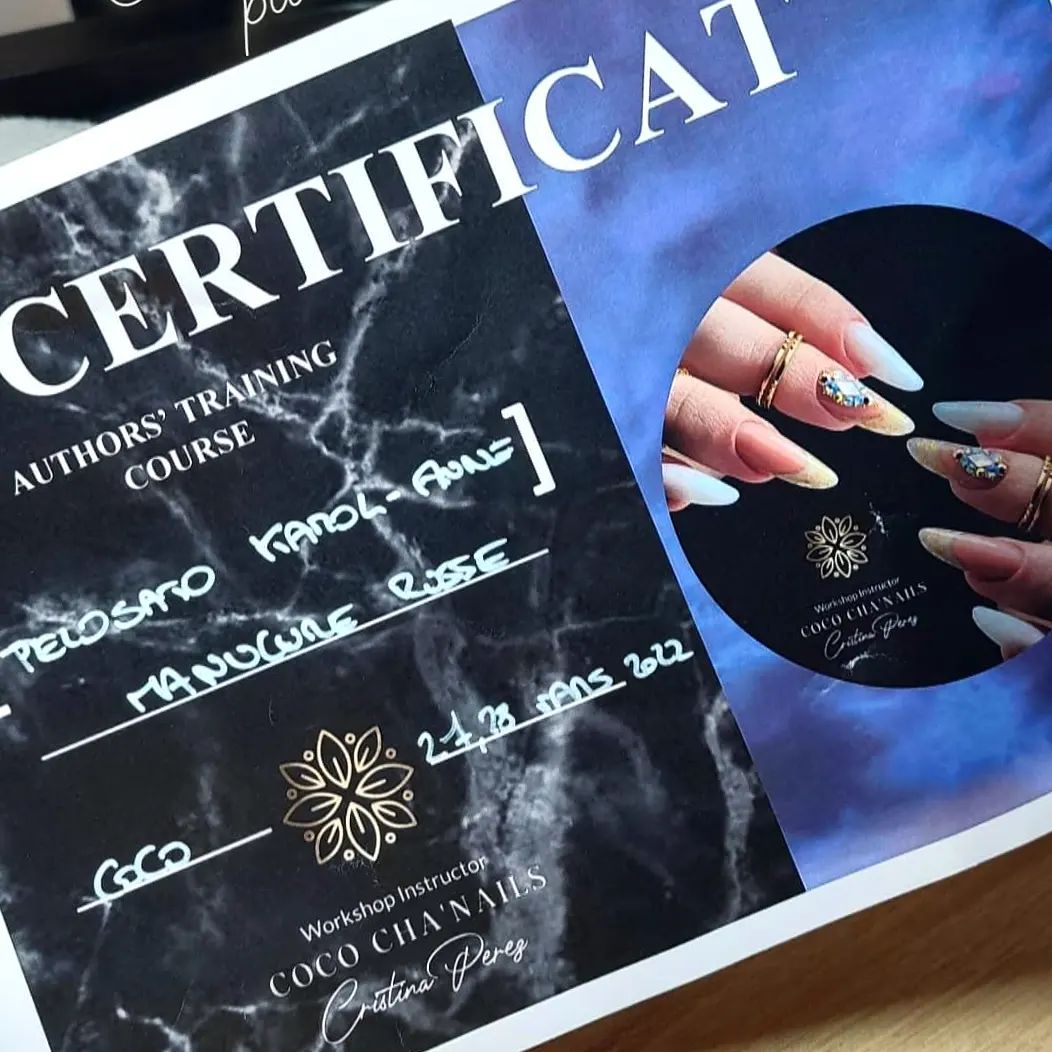 CERTIFICAT
AUTHORS' TRAINING
COURSE
PELOSATO KAROL-ANNE]
MANUCURE RUSSE
27,28 MARS 2022
COCO
Workshop Instructor
COCO CHA'NAILS
Cristina Perez
Workshop Instructor
COCO CHA'NAILS
Cristina Perez